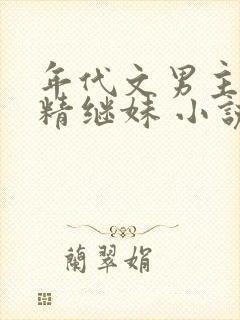 年代文男主
精继妹 小說
蘭翠娟